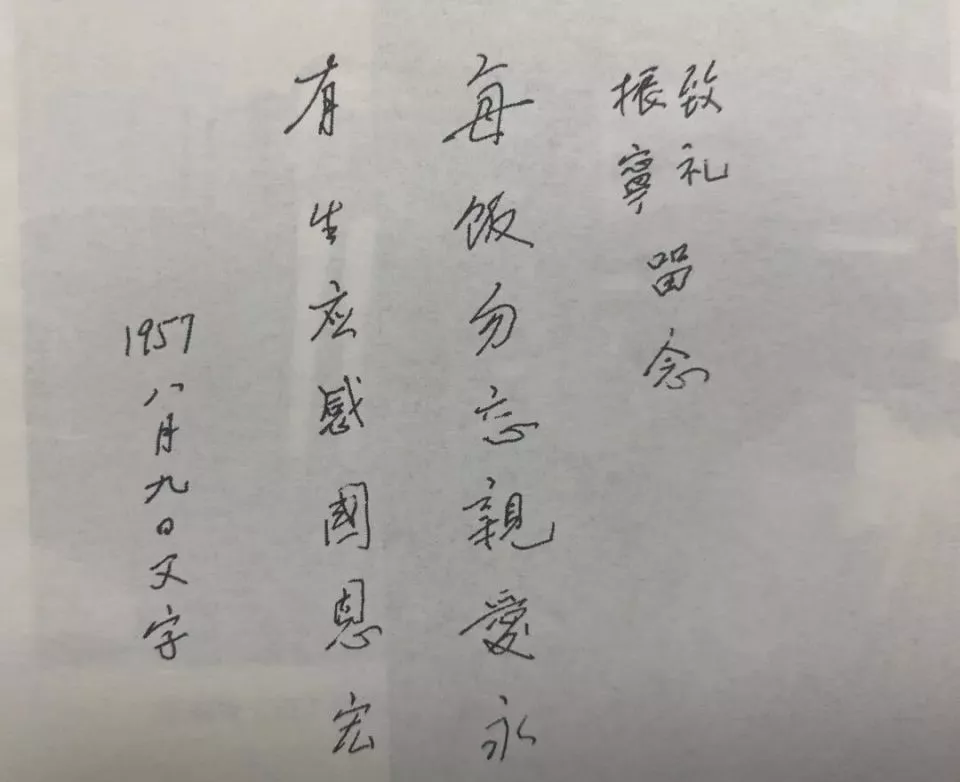 致礼
振寧留念
每饭勿忘親愛永
有生应感國恩宏
1957八月九日父字